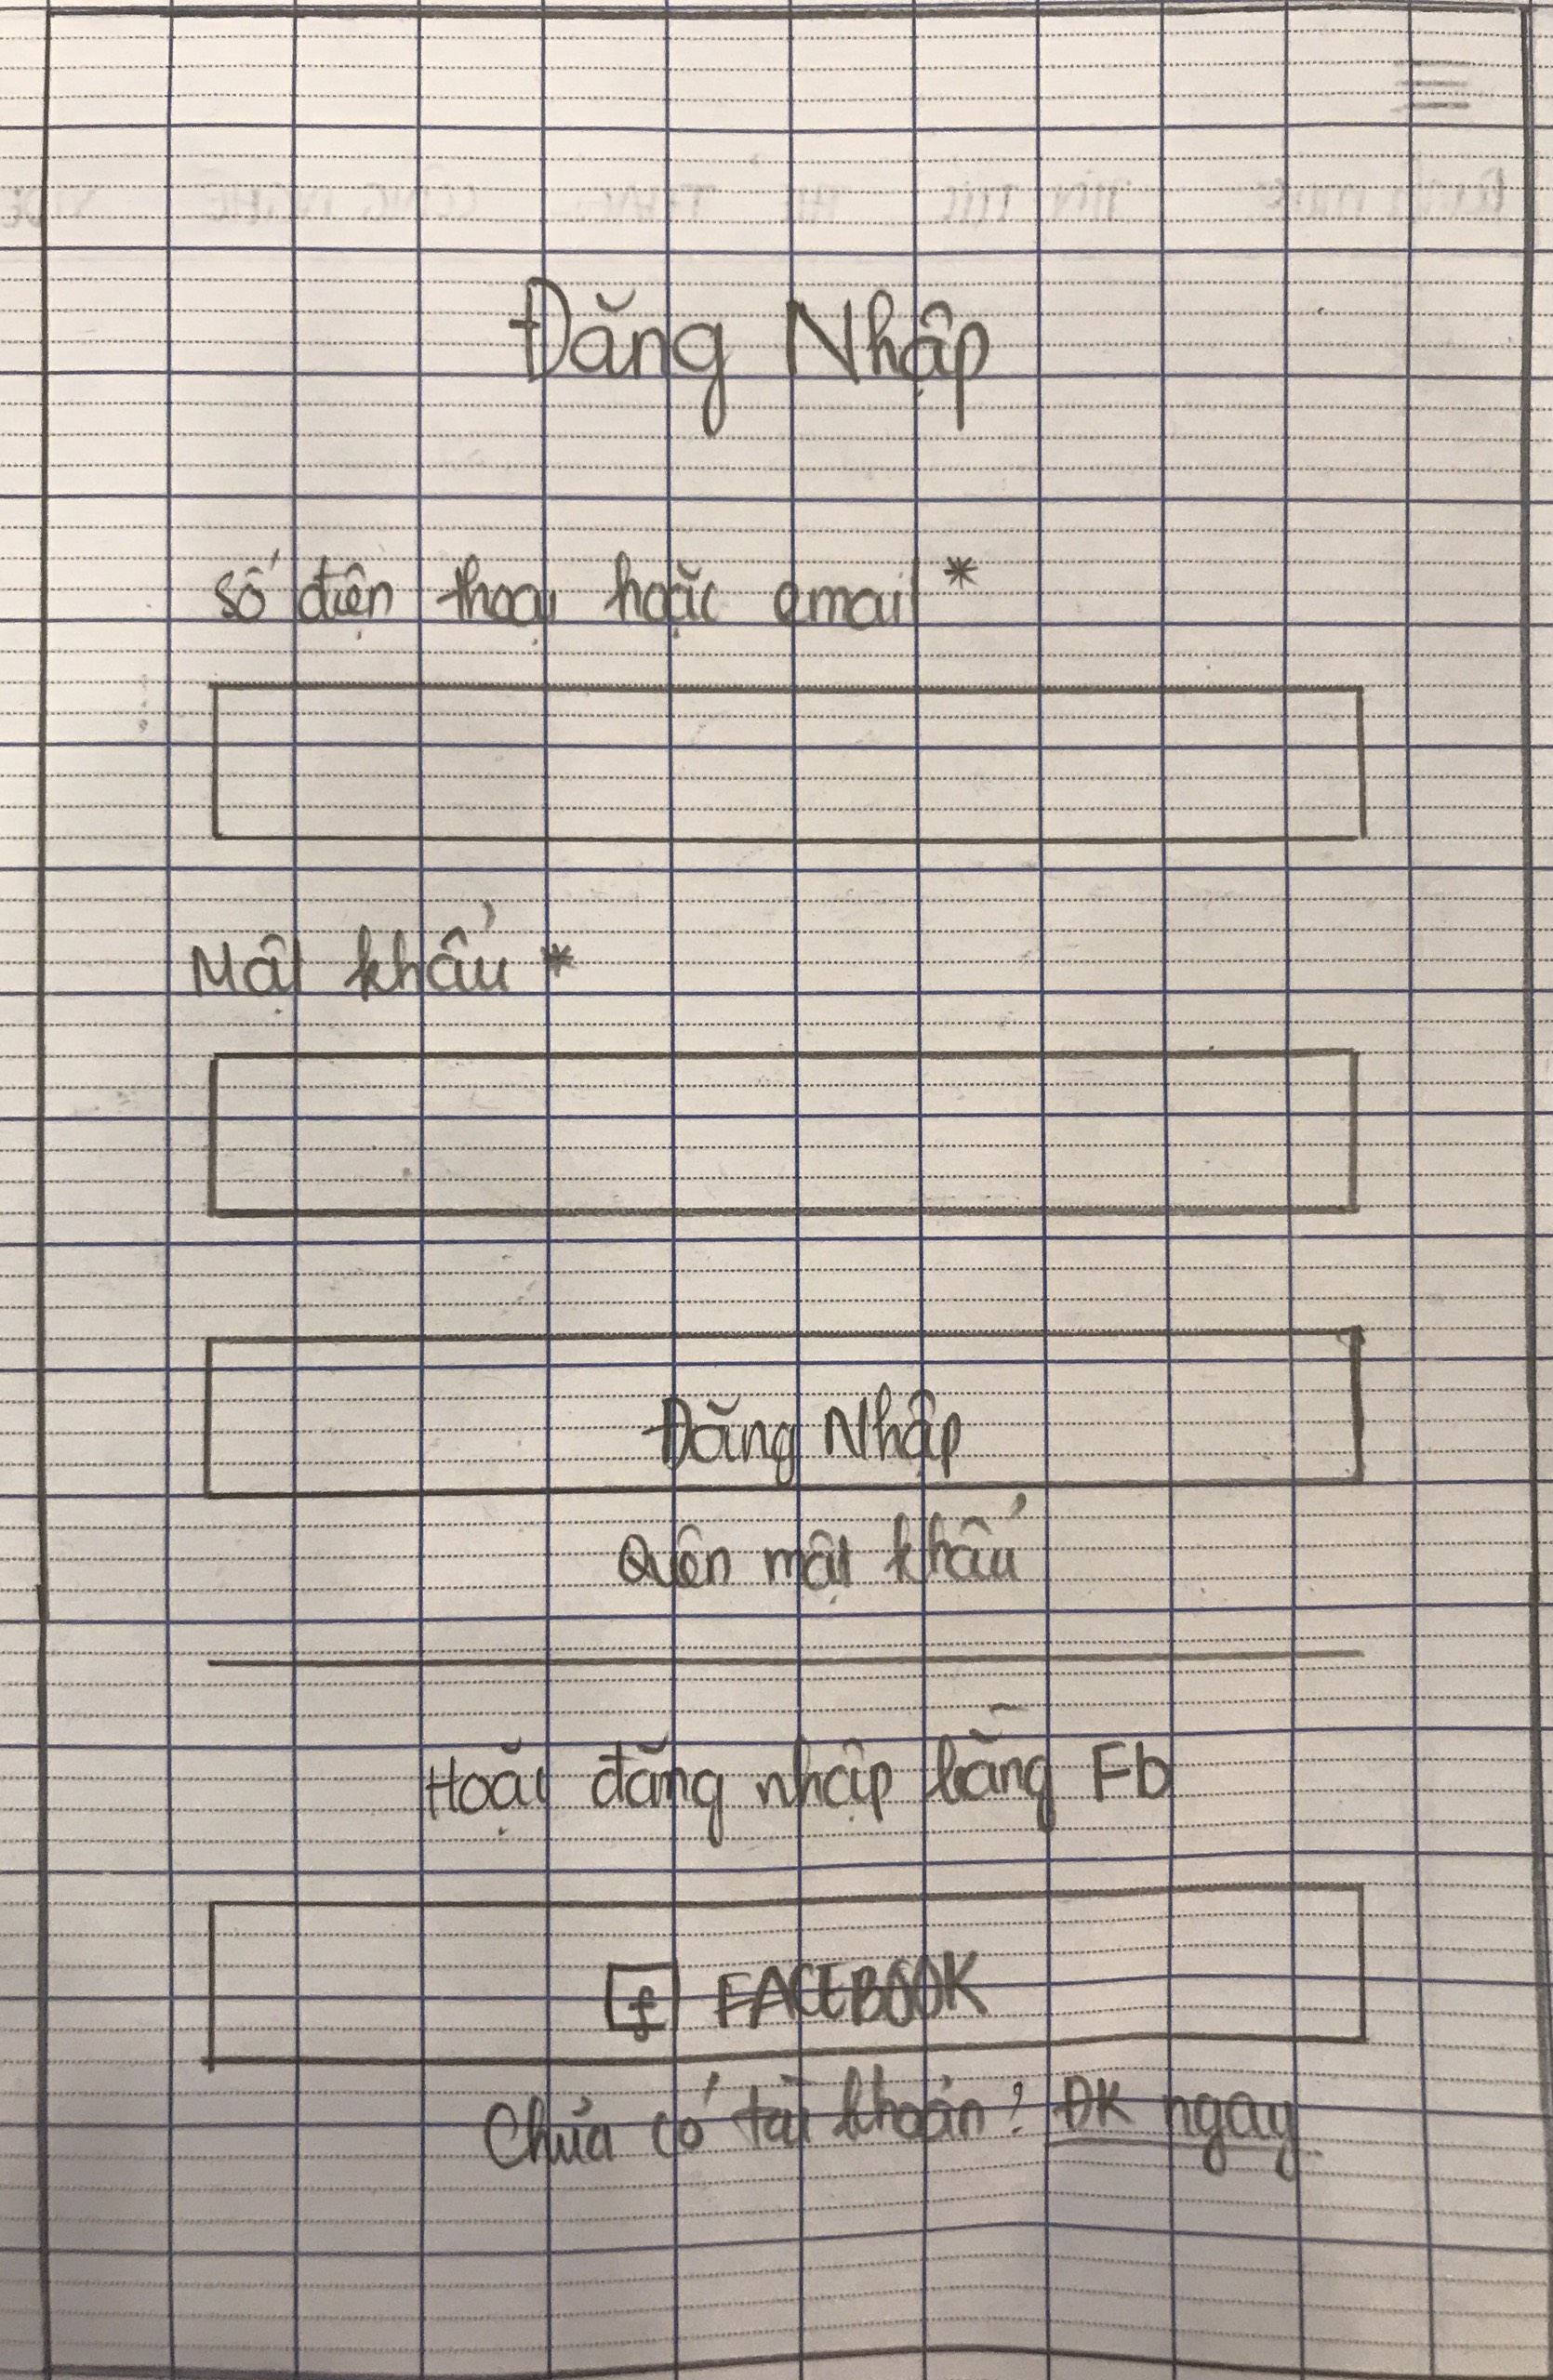 Đăng Nhập
Số điện thoại hoặc email *
Mật khẩu *
Đăng Nhập
Quên mật khẩu
Hoặc đăng nhập bằng Fb
f FACEBOOK
Chưa có tài khoản? ĐK ngay